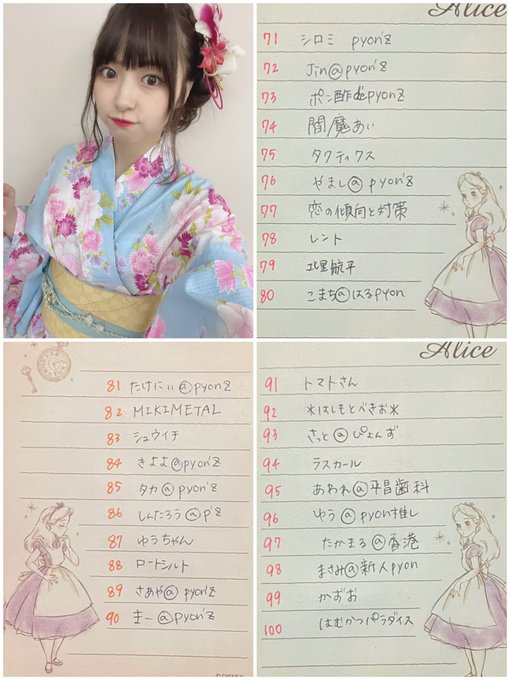 Alice
71 シロミ pyon'z
72 Jin@pyon'z
73 ポン酢de pyonz
74 閻魔あい
75 タクティクス
76 やまし@pyon'z
77 恋の傾向と対策
78 レント
79 北里航平
80 こまち@はるpyon
81 たけにぃ@pyon'z
82 MIKIMETAL
83 シュウイチ
84 きよよ@pyon'z
85 タカ@pyon'z
86 しんたろう@p'z
87 ゆうちゃん
88 ロートシルト
89 さあや@pyon'z
90 まー@pyon'z
© DISNEY
Alice
91 トマトさん
92 *はしもとべきお*
93 さっと@ぴょんず
94 ラスカール
95 あわれ@平昌歯科
96 ゆう@pyon推し
97 たかまる@香港
98 まさみ@新人pyon
99 かずお
100 はむかつパラダイス